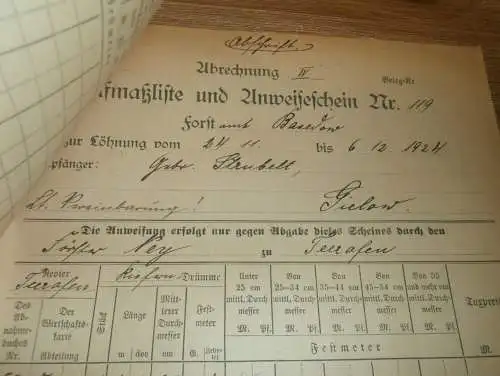 Abschrift.
Abrechnung IV
Beleg-Nr.
fmaßliste und Anweiseschein Nr. 119
Forstamt Basedow
zur Löhnung vom 24 11. bis 6 12. 1924
pfänger: Gebr. Strubelt,
Lt. Vereinbarung! Gielow.
Die Anweisung erfolgt nur gegen Abgabe dieses Scheines durch den
Förster Ney zu Teerofen
Revier Teerofen
Kiefern Drümme
Des Abnahmebuches Nr.
Der Wirtschaftskarte Abteilung
Stück
Länge m dcm
Mittlerer Durchmesser cm
Festmeter G.
Unter 25 cm mittl. Durchmesser M. Pf.
Von 25–34 cm mittl. Durchmesser M. Pf.
Von 35–44 cm mittl. Durchmesser M. Pf.
Von 45–54 cm mittl. Durchmesser M. Pf.
Von 55 und mehr cm mittl. Durchmesser M. Pf.
Festmeter
Taxpreis
M.